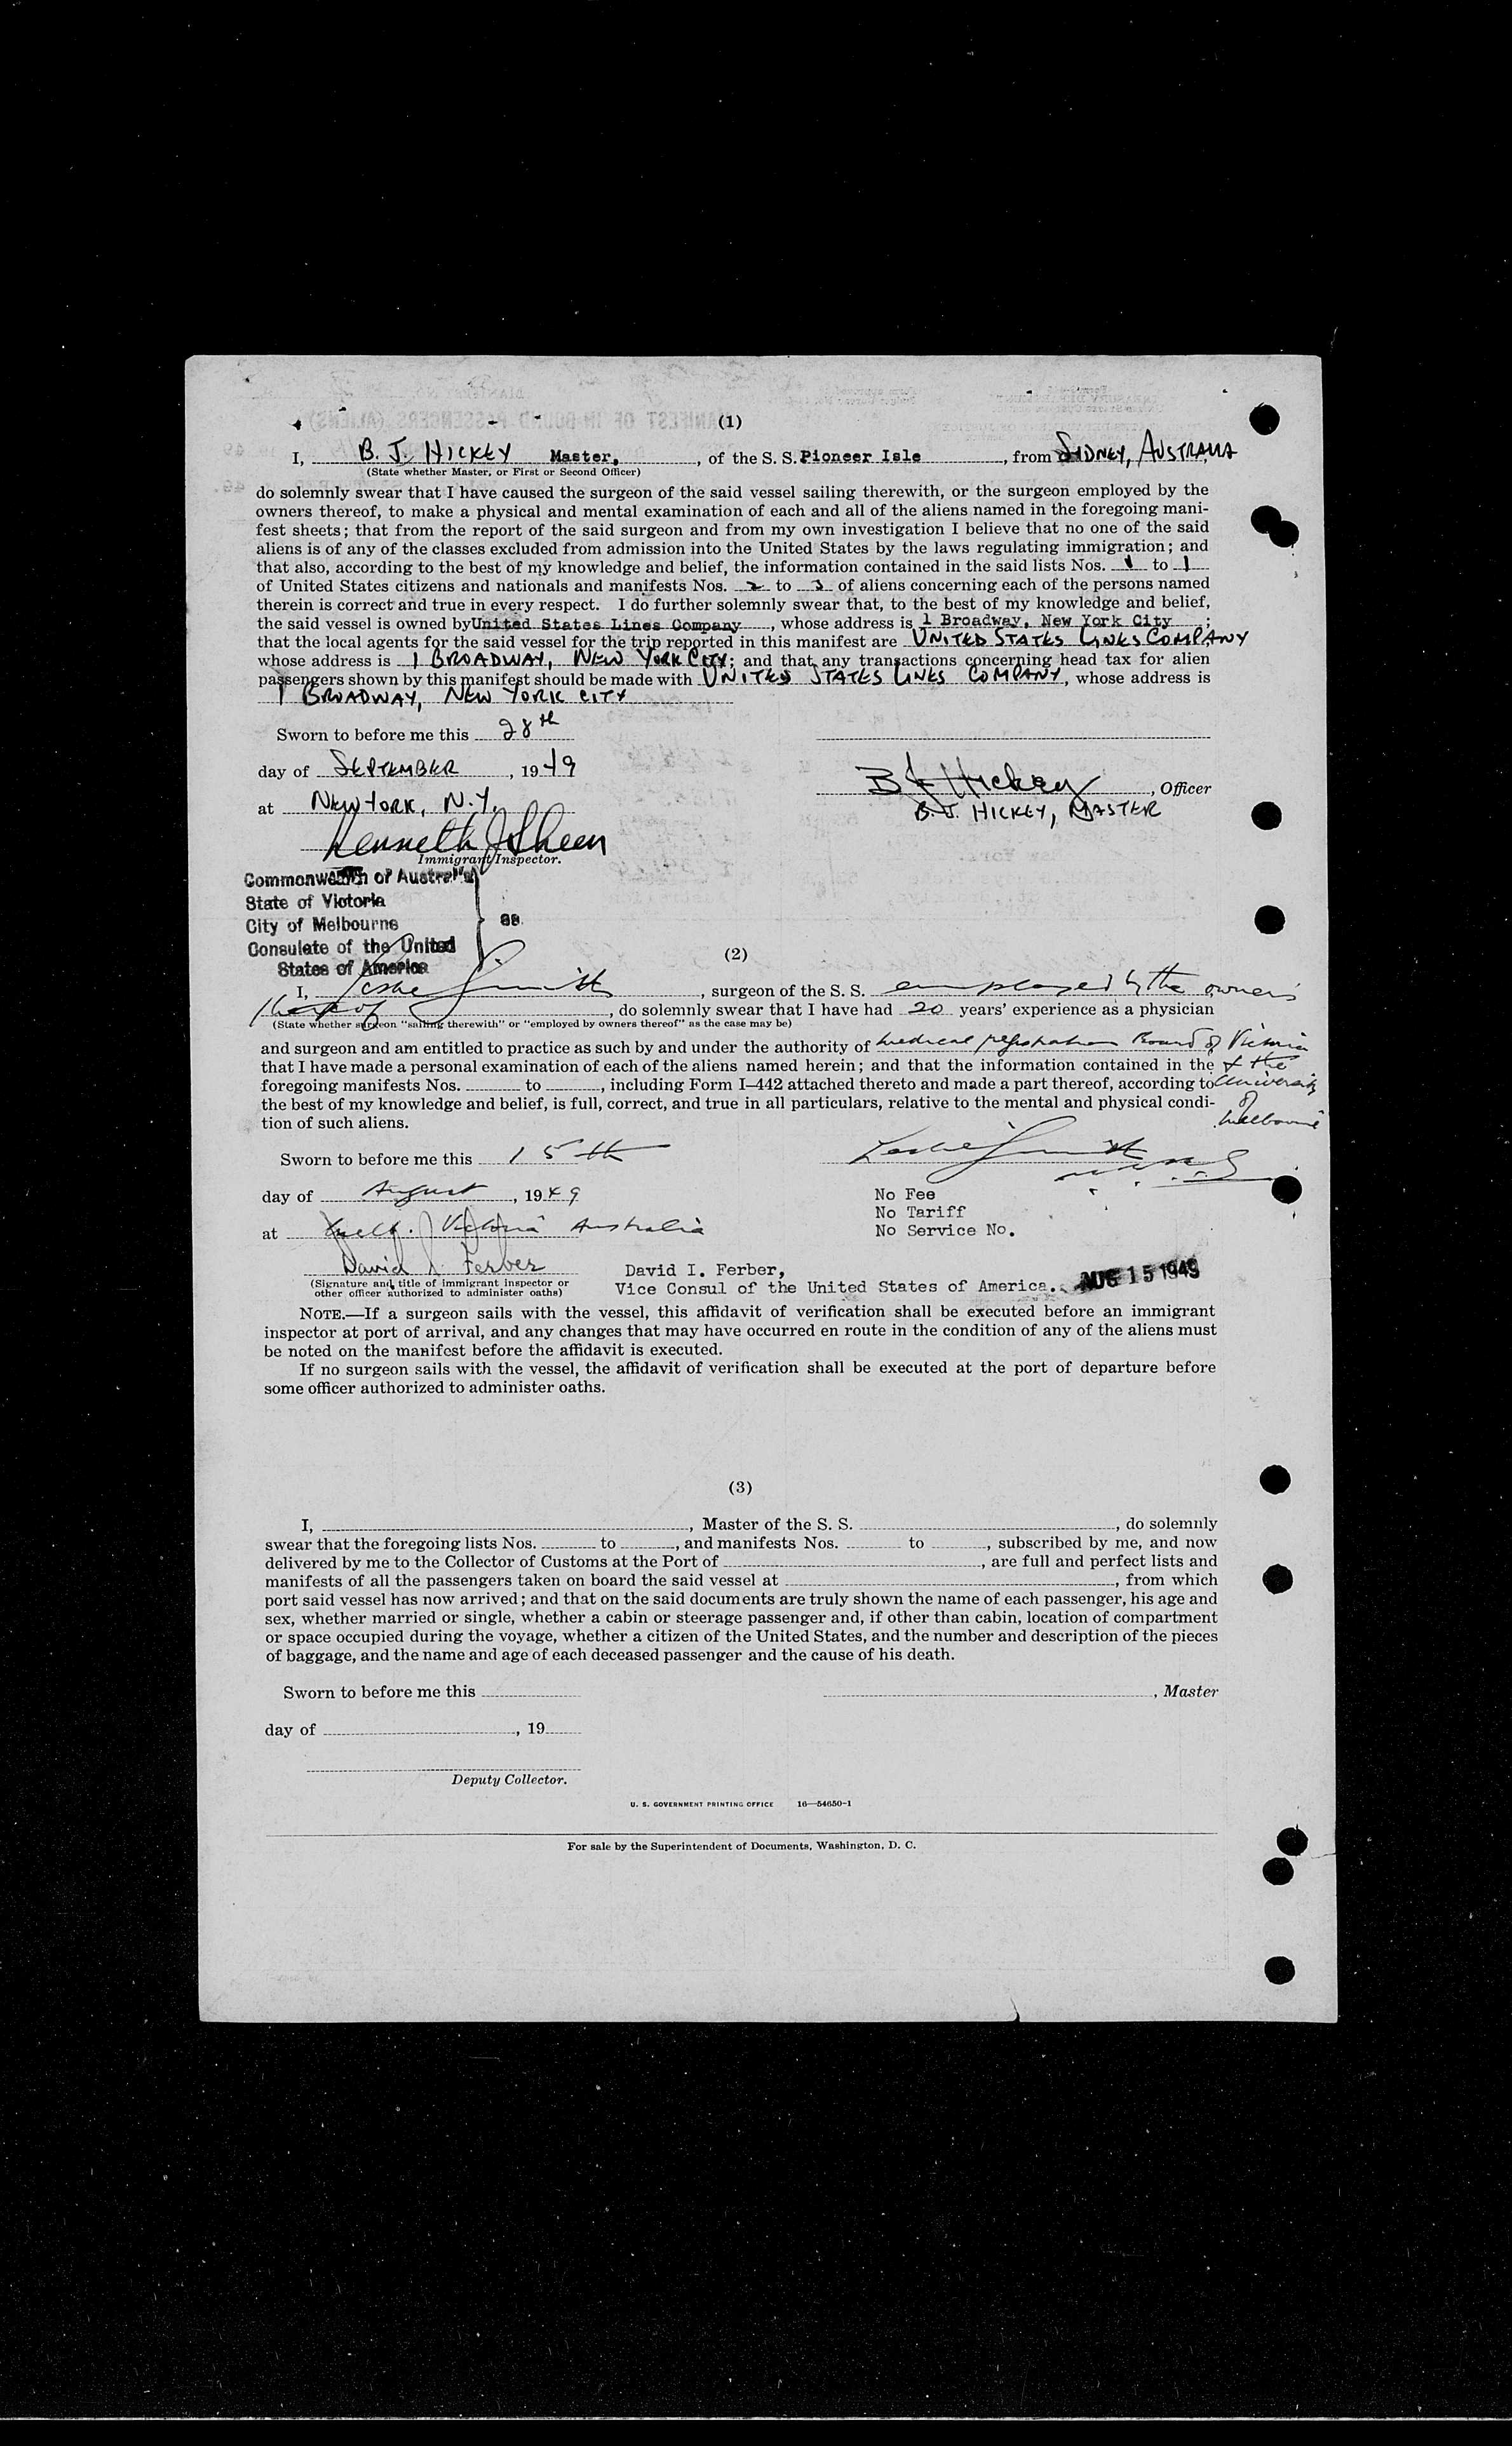 (1)
I, B. J. HICKEY Master, , of the S. S. Pioneer Isle , from SYDNEY, AUSTRALIA
(State whether Master, or First or Second Officer)
do solemnly swear that I have caused the surgeon of the said vessel sailing therewith, or the surgeon employed by the
owners thereof, to make a physical and mental examination of each and all of the aliens named in the foregoing mani-
fest sheets; that from the report of the said surgeon and from my own investigation I believe that no one of the said
aliens is of any of the classes excluded from admission into the United States by the laws regulating immigration; and
that also, according to the best of my knowledge and belief, the information contained in the said lists Nos. 1 to 1
of United States citizens and nationals and manifests Nos. 2 to 3 of aliens concerning each of the persons named
therein is correct and true in every respect. I do further solemnly swear that, to the best of my knowledge and belief,
the said vessel is owned by United States Lines Company , whose address is 1 Broadway, New York City ;
that the local agents for the said vessel for the trip reported in this manifest are UNITED STATES LINES COMPANY
whose address is 1 BROADWAY, NEW YORK CITY; and that any transactions concerning head tax for alien
passengers shown by this manifest should be made with UNITED STATES LINES COMPANY, whose address is
1 BROADWAY, NEW YORK CITY
Sworn to before me this 28th
day of SEPTEMBER , 1949
B J Hickey , Officer
at NEW YORK, N.Y.
B. J. HICKEY, MASTER
Kenneth J Sheen
Immigrant Inspector.
Commonwealth of Australia
State of Victoria
City of Melbourne } ss.
Consulate of the United
States of America
(2)
I, Leslie Smith , surgeon of the S. S. employed by the owners
thereof , do solemnly swear that I have had 20 years' experience as a physician
(State whether surgeon "sailing therewith" or "employed by owners thereof" as the case may be)
and surgeon and am entitled to practice as such by and under the authority of Medical registration Board of Victoria
that I have made a personal examination of each of the aliens named herein; and that the information contained in the & the
foregoing manifests Nos. to , including Form I-442 attached thereto and made a part thereof, according to University
the best of my knowledge and belief, is full, correct, and true in all particulars, relative to the mental and physical condi- of
tion of such aliens. Melbourne
Sworn to before me this 15th Leslie Smith
day of August , 1949
No Fee
No Tariff
at Melb. Victoria Australia No Service No.
David I Ferber
David I. Ferber,
(Signature and title of immigrant inspector or
other officer authorized to administer oaths)
Vice Consul of the United States of America. AUG 15 1949
NOTE.—If a surgeon sails with the vessel, this affidavit of verification shall be executed before an immigrant
inspector at port of arrival, and any changes that may have occurred en route in the condition of any of the aliens must
be noted on the manifest before the affidavit is executed.
If no surgeon sails with the vessel, the affidavit of verification shall be executed at the port of departure before
some officer authorized to administer oaths.
(3)
I, , Master of the S. S. , do solemnly
swear that the foregoing lists Nos. to , and manifests Nos. to , subscribed by me, and now
delivered by me to the Collector of Customs at the Port of , are full and perfect lists and
manifests of all the passengers taken on board the said vessel at , from which
port said vessel has now arrived; and that on the said documents are truly shown the name of each passenger, his age and
sex, whether married or single, whether a cabin or steerage passenger and, if other than cabin, location of compartment
or space occupied during the voyage, whether a citizen of the United States, and the number and description of the pieces
of baggage, and the name and age of each deceased passenger and the cause of his death.
Sworn to before me this
, Master
day of , 19
Deputy Collector.
U. S. GOVERNMENT PRINTING OFFICE 16—54650-1
For sale by the Superintendent of Documents, Washington, D. C.